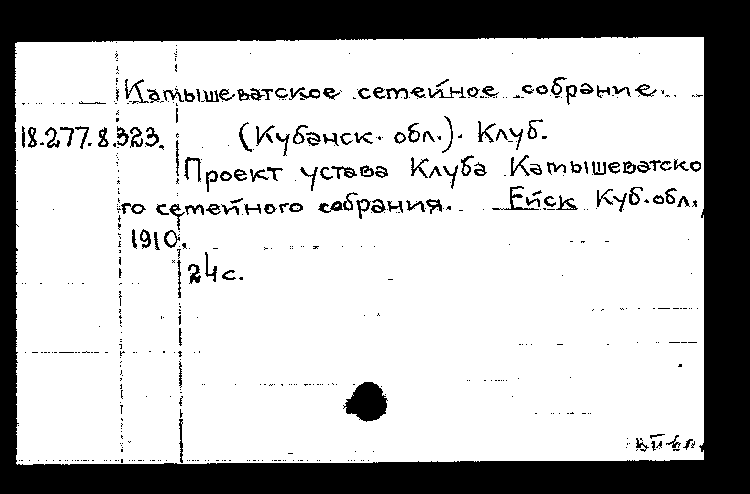 Катышеватское семейное собрание.
18.277.8.323. (Кубанск. обл.). Клуб.
Проект устава Клуба Катышеватско
го семейного собрания. Ейск Куб. обл.,
1910.
24 с.